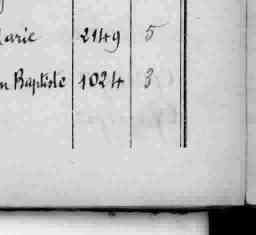 arie 2149 5
n Baptiste 1024 3